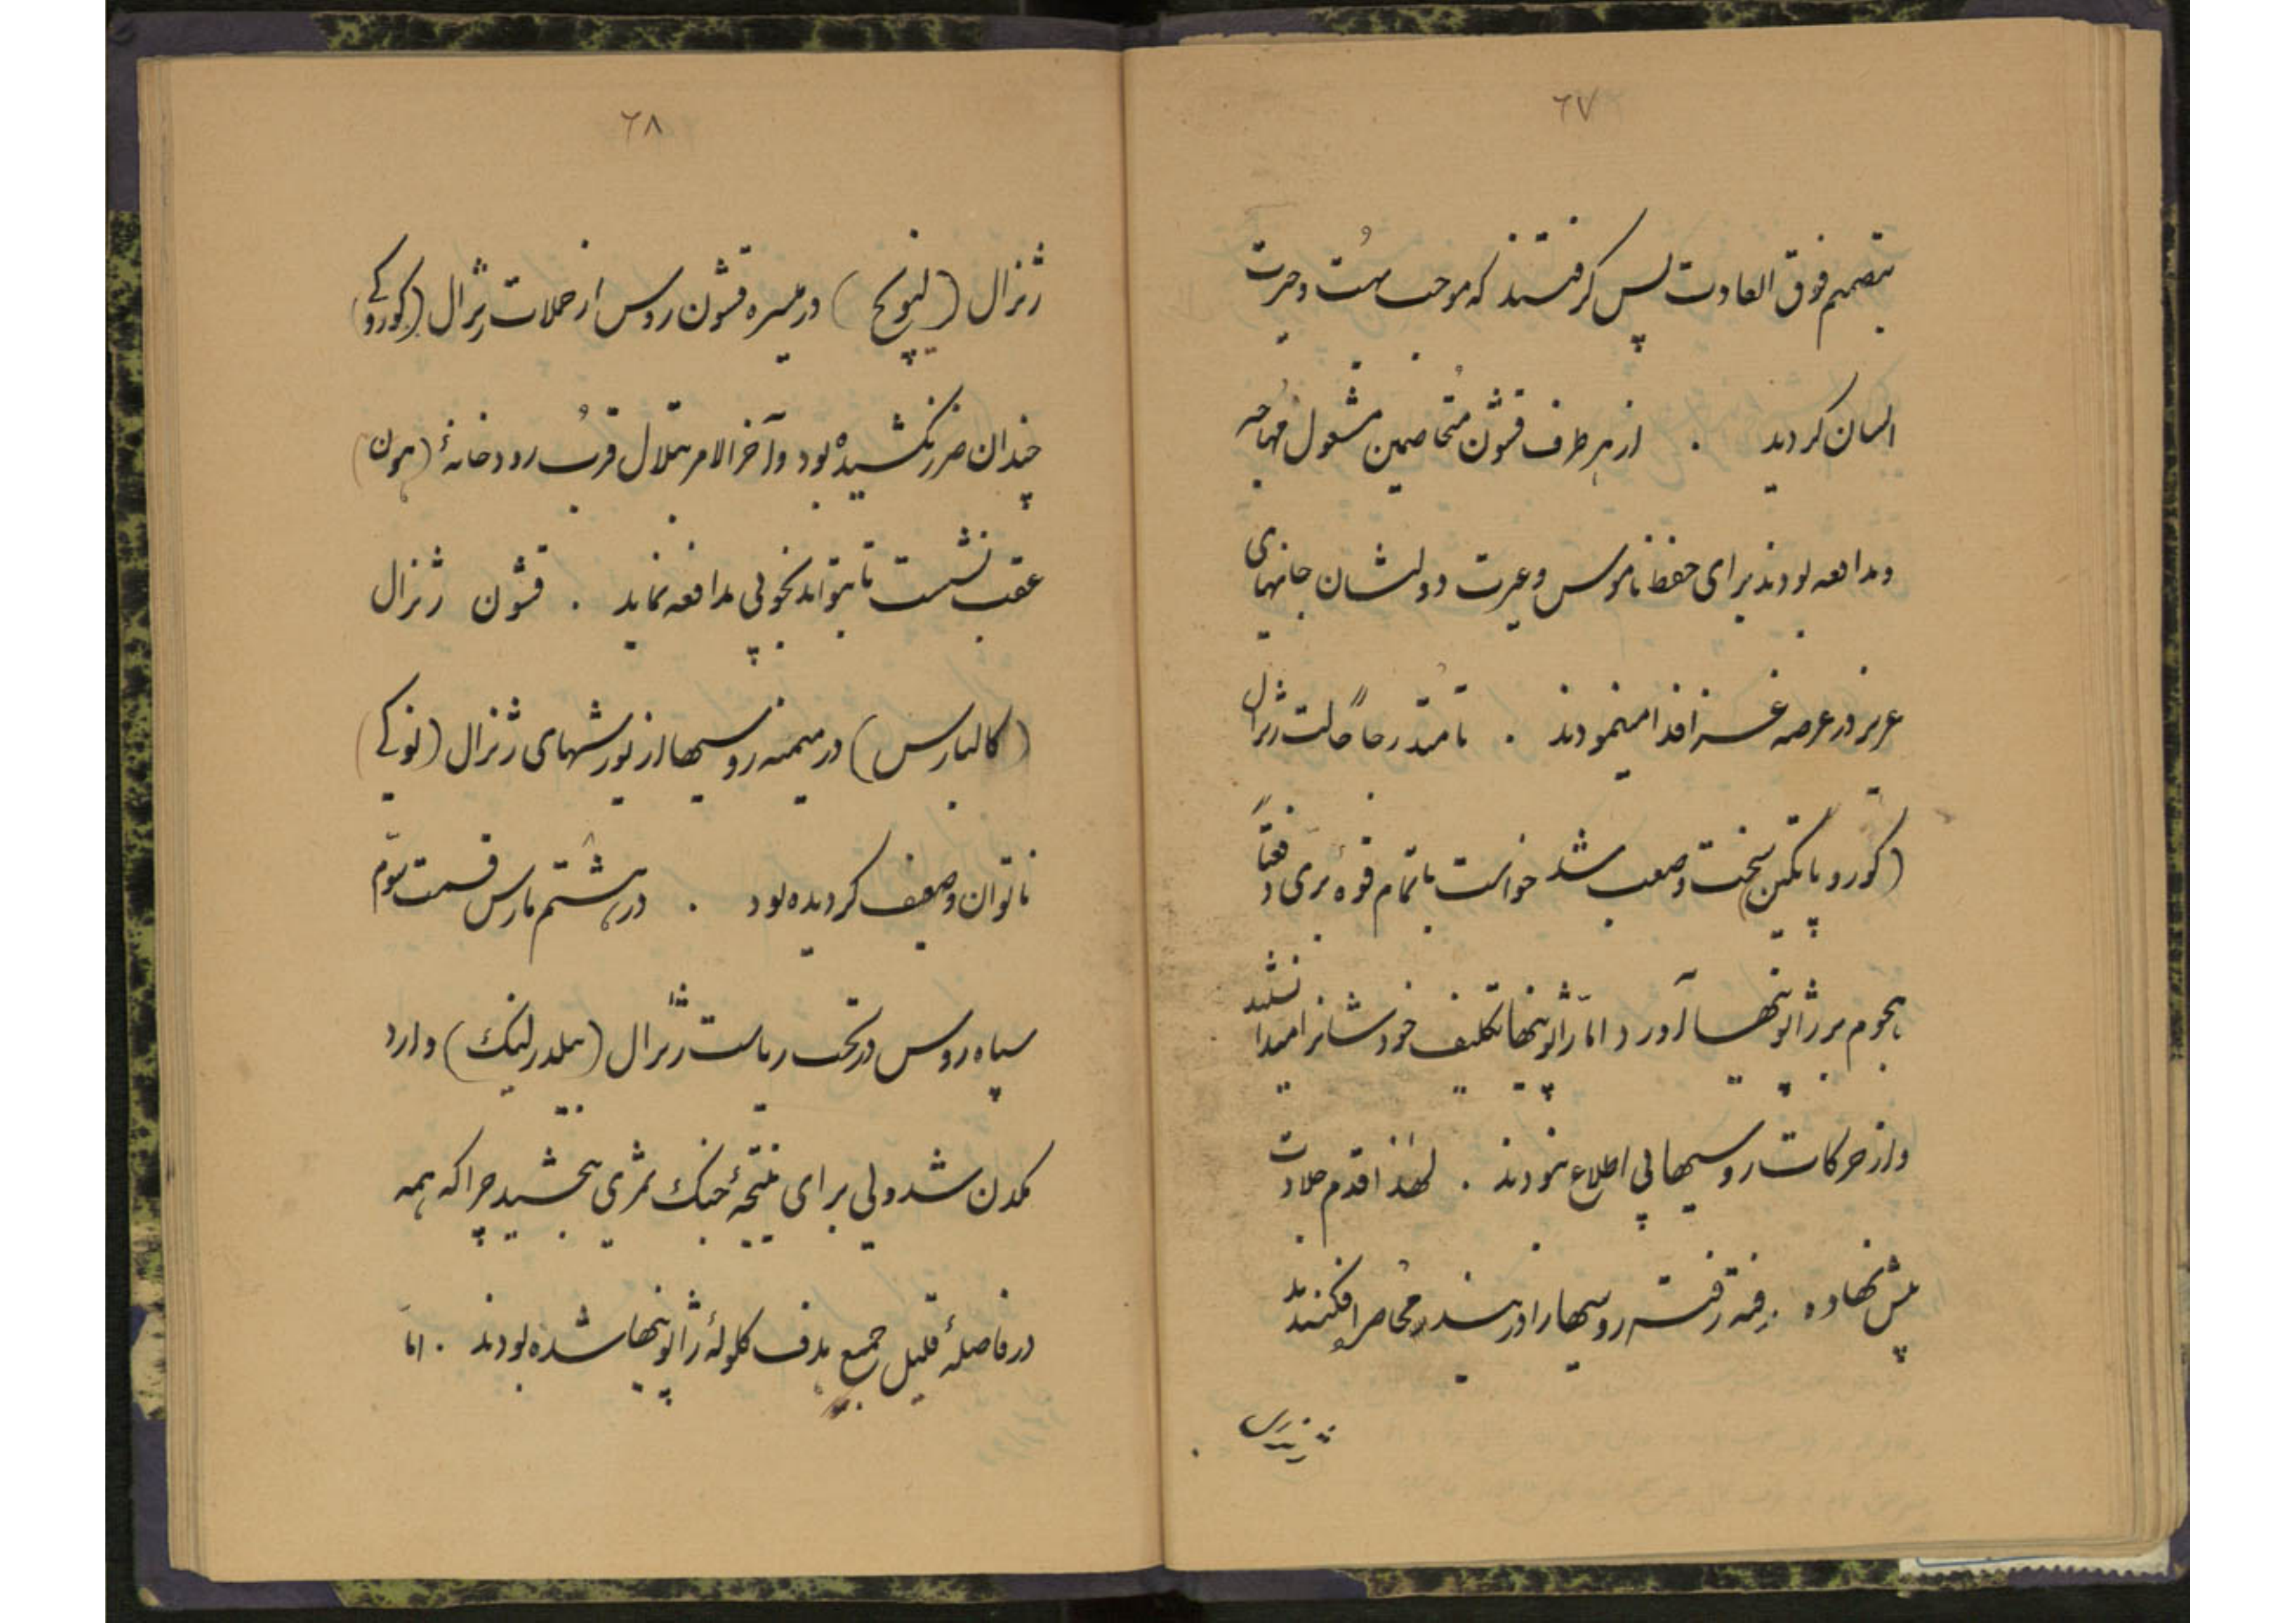 ٦٧
بتصمیم فوق العادت پس گرفتند که موجب بهت و حیرت
انسان گردید . از هر طرف قشون متخاصمین مشغول مهاجمه
و مدافعه بودند برای حفظ ناموس و غیرت دولتشان جانهای
عزیز در عرصه فدا مینمودند . تا حالت ژنرال
(کوروپاتکین) سخت و صعب شد خواست با تمام قوه بری دفعتاً
هجوم بر ژاپونیها آورد اما ژاپونیها تکلیف خودشانرا میدانستند
و از حرکات روسیها بی اطلاع نبودند . لهذا قدم جلادت
پیش نهاده . رفته رفته روسیها را در محاصره افکندند
٦٨
ژنرال (لینویچ) در میسره قشون روس از حملات ژنرال (کوروکی)
چندان ضرر نکشیده بود و آخر الامر بتلال قرب رودخانهٔ (هون)
عقب نشست تا بتواند بخوبی مدافعه نماید . قشون ژنرال
(کالبارس) در میمنه روسیها از یورشهای ژنرال (نوکی)
ناتوان و ضعیف گردیده بود . در هشتم مارس قسمت سوّم
سپاه روس در تحت ریاست ژنرال (بیلدرلینک) وارد
مکدن شد ولی برای نتیجهٔ جنک ثمری نبخشید چرا که همه
در فاصلهٔ قلیل جمیع هدف کلولهٔ ژاپونیها شده بودند . امّا